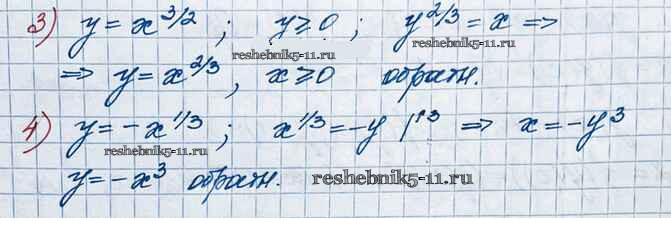 3) y = x^{3/2} ; y ≥ 0 ; y^{2/3} = x ⇒
reshebnik5-11.ru reshebnik5-11.ru
⇒ y = x^{2/3} , x ≥ 0 обратн.
4) y = -x^{1/3} ; x^{1/3} = -y |↑^3 ⇒ x = -y^3
reshebnik5-11.ru
y = -x^3 обратн. reshebnik5-11.ru